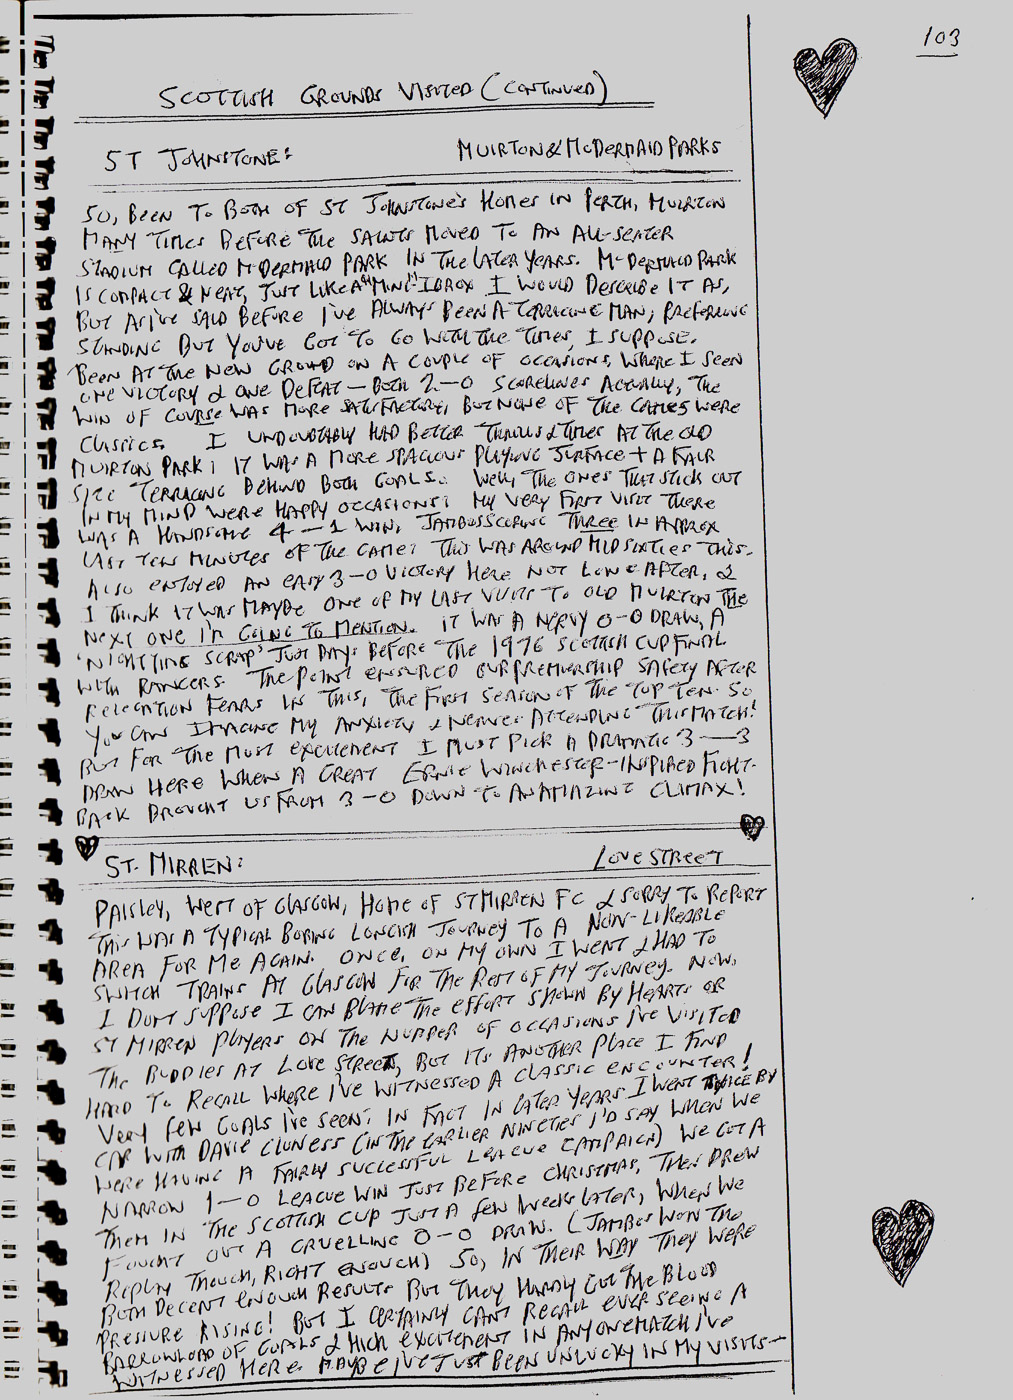 103
SCOTTISH GROUNDS VISITED (CONTINUED)
ST JOHNSTONE: MUIRTON & McDERMAID PARKS
SO, BEEN TO BOTH OF ST JOHNSTONE'S HOMES IN PERTH, MUIRTON
MANY TIMES BEFORE THE SAINTS MOVED TO AN ALL-SEATER
STADIUM CALLED McDERMAID PARK IN THE LATER YEARS. McDERMAID PARK
IS COMPACT & NEAT, JUST LIKE A "MINI" IBROX I WOULD DESCRIBE IT AS,
BUT AS I'VE SAID BEFORE I'VE ALWAYS BEEN A TERRACING MAN, PREFERRING
STANDING BUT YOU'VE GOT TO GO WITH THE TIMES, I SUPPOSE.
BEEN AT THE NEW GROUND ON A COUPLE OF OCCASIONS, WHERE I SEEN
ONE VICTORY & ONE DEFEAT — BOTH 2—0 SCORELINES ACTUALLY, THE
WIN OF COURSE WAS MORE SATISFACTORY, BUT NONE OF THE GAMES WERE
CLASSICS. I UNDOUBTABLY HAD BETTER THRILLS & TIMES AT THE OLD
MUIRTON PARK; IT WAS A MORE SPACIOUS PLAYING SURFACE + A FAIR
SIZE TERRACING BEHIND BOTH GOALS. WELL, THE ONES THAT STICK OUT
IN MY MIND WERE HAPPY OCCASIONS; MY VERY FIRST VISIT THERE
WAS A HANDSOME 4—1 WIN, JAMBOS SCORING THREE IN APPROX
LAST TEN MINUTES OF THE GAME; THIS WAS AROUND MID SIXTIES THIS.
ALSO ENJOYED AN EASY 3—0 VICTORY HERE NOT LONG AFTER, &
I THINK IT WAS MAYBE ONE OF MY LAST VISITS TO OLD MUIRTON THE
NEXT ONE I'M GOING TO MENTION. IT WAS A NERVY 0—0 DRAW, A
'NIGHTTIME SCRAP' JUST DAYS BEFORE THE 1976 SCOTTISH CUP FINAL
WITH RANGERS. THE POINT ENSURED OUR PREMIERSHIP SAFETY AFTER
RELEGATION FEARS IN THIS, THE FIRST SEASON OF THE TOP TEN. SO
YOU CAN IMAGINE MY ANXIETY & NERVES ATTENDING THIS MATCH!
BUT FOR THE MOST EXCITEMENT I MUST PICK A DRAMATIC 3—3
DRAW HERE WHEN A GREAT ERNIE WINCHESTER-INSPIRED FIGHT-
BACK BROUGHT US FROM 3—0 DOWN TO AN AMAZING CLIMAX!
ST. MIRREN: LOVE STREET
PAISLEY, WEST OF GLASGOW, HOME OF ST MIRREN FC & SORRY TO REPORT
THIS WAS A TYPICAL BORING LONGISH JOURNEY TO A NON-LIKEABLE
AREA FOR ME AGAIN. ONCE, ON MY OWN I WENT & HAD TO
SWITCH TRAINS AT GLASGOW FOR THE REST OF MY JOURNEY. NOW,
I DON'T SUPPOSE I CAN BLAME THE EFFORT SHOWN BY HEARTS OR
ST MIRREN PLAYERS ON THE NUMBER OF OCCASIONS I'VE VISITED
THE BUDDIES AT LOVE STREET, BUT ITS ANOTHER PLACE I FIND
HARD TO RECALL WHERE I'VE WITNESSED A CLASSIC ENCOUNTER!
VERY FEW GOALS I'VE SEEN; IN FACT IN LATER YEARS I WENT TWICE BY
CAR WITH DAVIE CLUNESS (IN THE EARLIER NINETIES I'D SAY WHEN WE
WERE HAVING A FAIRLY SUCCESSFUL LEAGUE CAMPAIGN) WE GOT A
NARROW 1—0 LEAGUE WIN JUST BEFORE CHRISTMAS, THEN DREW
THEM IN THE SCOTTISH CUP JUST A FEW WEEKS LATER, WHEN WE
FOUGHT OUT A GRUELLING 0—0 DRAW. (JAMBOS WON THE
REPLAY THOUGH, RIGHT ENOUGH) SO, IN THEIR WAY THEY WERE
BOTH DECENT ENOUGH RESULTS BUT THEY HARDLY GOT THE BLOOD
PRESSURE RISING! BUT I CERTAINLY CAN'T RECALL EVER SEEING A
BARROWLOAD OF GOALS & HIGH EXCITEMENT IN ANY ONE MATCH I'VE
WITNESSED HERE. MAYBE I'VE JUST BEEN UNLUCKY IN MY VISITS—